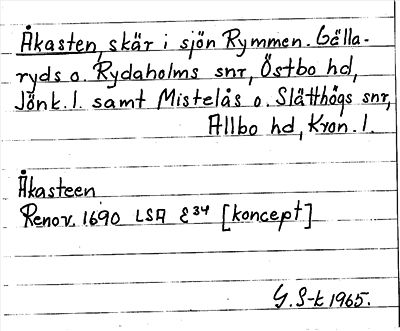 Åkasten, skär i sjön Rymmen. Gälla-
ryds o. Rydaholms snr, Östbo hd,
Jönk. l. samt Mistelås o. Slätthögs snr,
Allbo hd, Kron. l.
Åkasteen
Renov. 1690 LSA E34 [koncept]
G. S-t 1965.